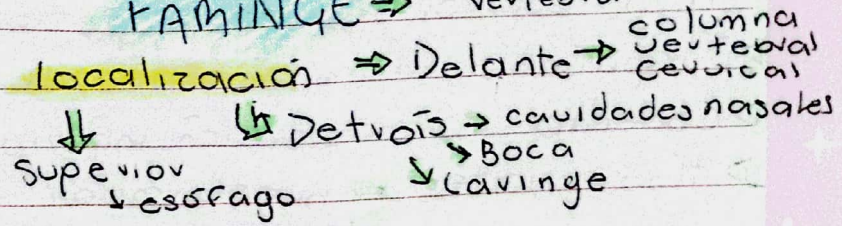 FARINGE ⇒
localización ⇒ Delante → columna vertebral cervical
Detrás → cavidades nasales
→ Boca
Superior ↘ Laringe
↓ esófago